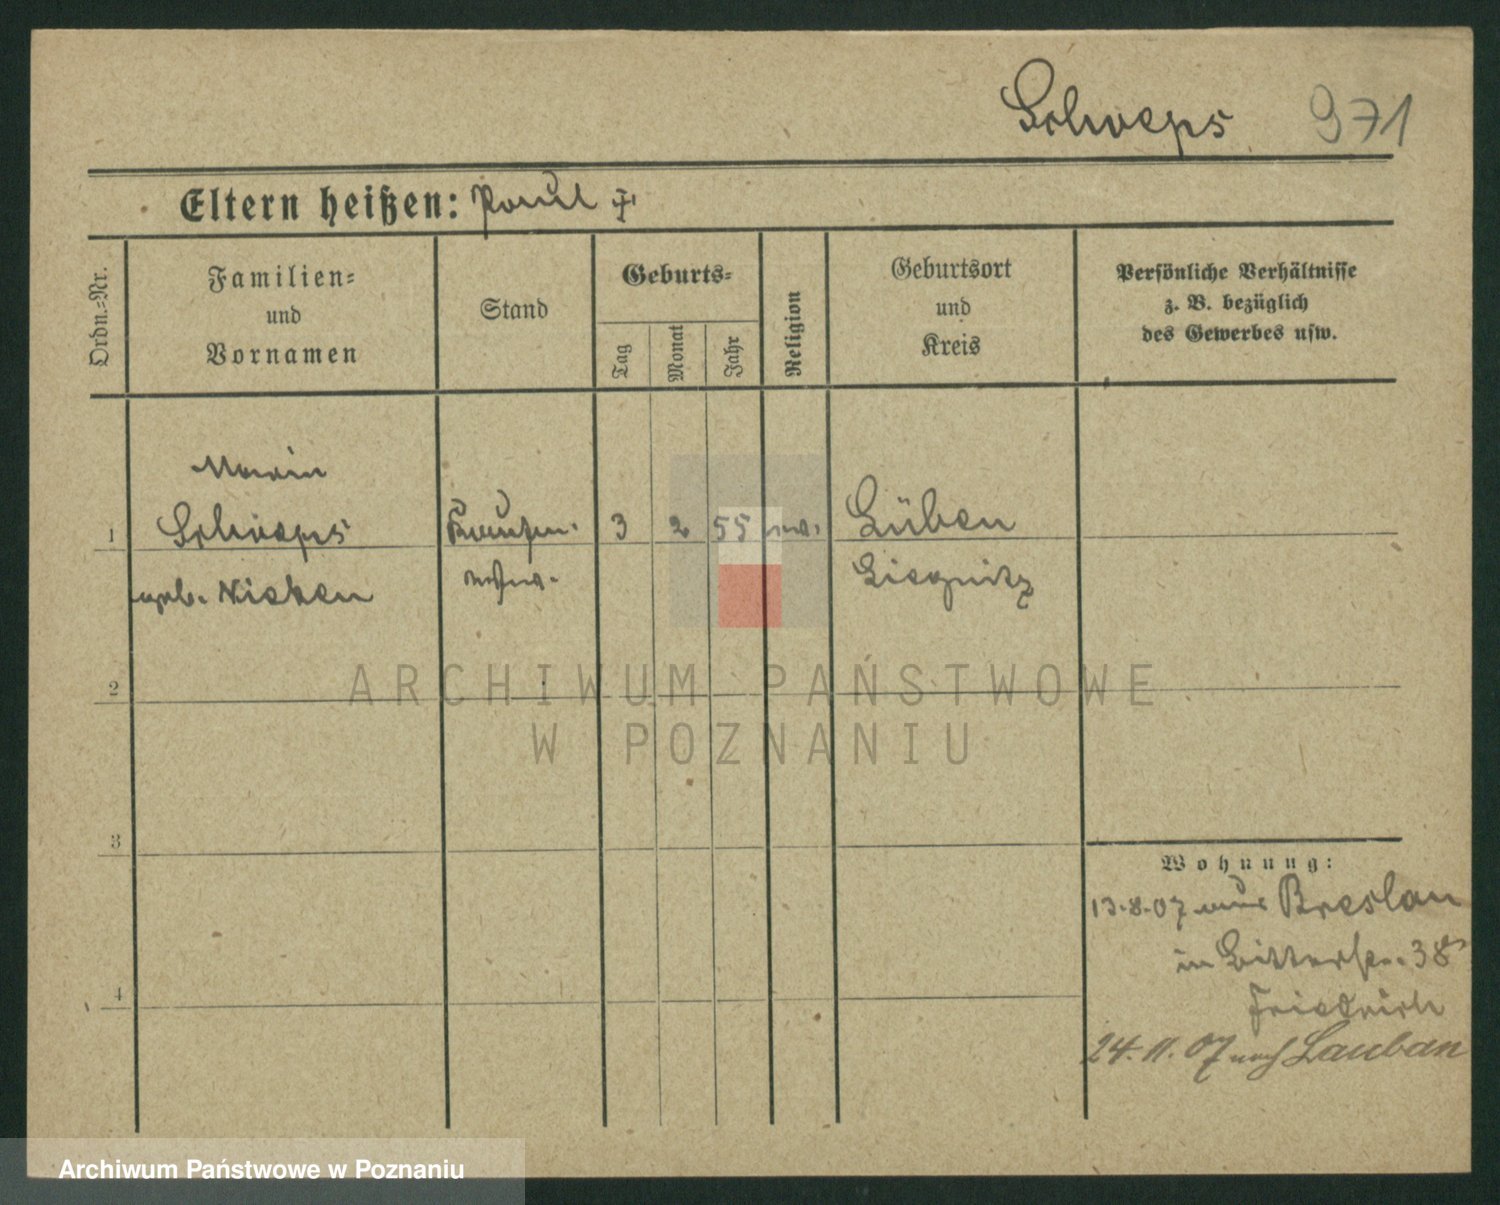 Schoeps 971
Eltern heißen: Paul †
Ordn.-Nr.
Familien-
und
Vornamen
Stand
Geburts-
Tag
Monat
Jahr
Religion
Geburtsort
und
Kreis
Persönliche Verhältnisse
z. B. bezüglich
des Gewerbes usw.
Maria
1 Schoeps Kaufm. 3 2 55 Lüben
geb. wwe. Liegnitz
2
3
4
Wohnung:
13.8.07 aus Breslau
in Ritterstr. 38
Friedrich
24.11.07 nach Lauban
ARCHIWUM PAŃSTWOWE
W POZNANIU
Archiwum Państwowe w Poznaniu